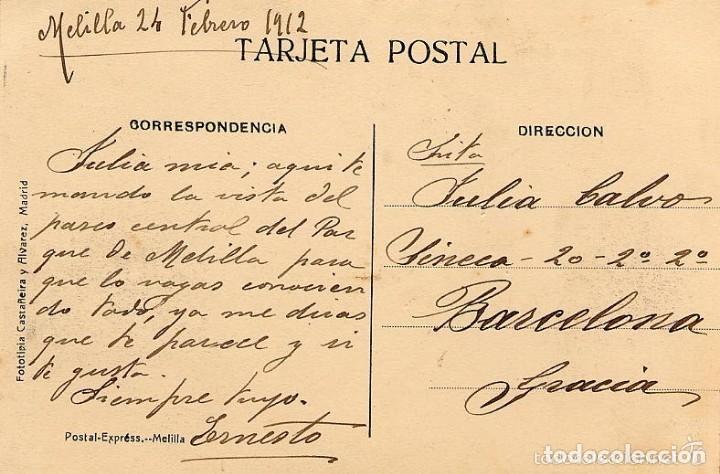 Melilla 24 Febrero 1912
TARJETA POSTAL
CORRESPONDENCIA
Julia mia; aqui te
mando la vista del
paseo central del Par
que de Melilla para
que lo vayas conocien
do todo, ya me diras
que te parece y si
te gusta.
Siempre tuyo.
Ernesto
Postal-Expréss.--Melilla
Fototipia Castañeira y Alvarez, Madrid
DIRECCION
Srita
Julia Calvo
Séneca - 20 - 2º 2ª
Barcelona
Gracia
todocoleccion.net